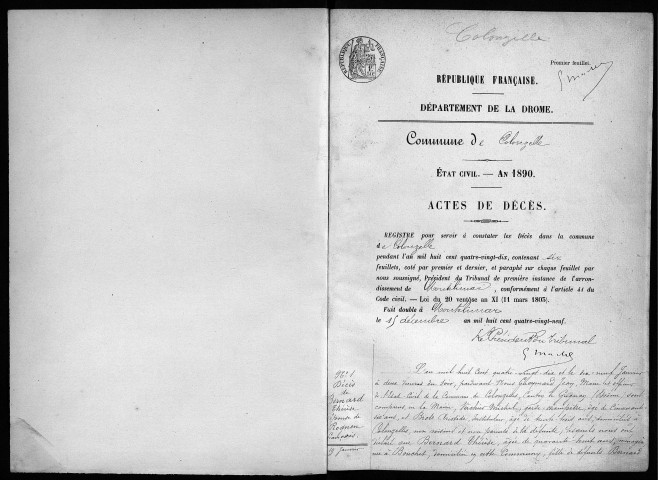 Colonzelle
Premier feuillet.
RÉPUBLIQUE FRANÇAISE
RÉPUBLIQUE FRANÇAISE.
DÉPARTEMENT DE LA DROME.
Commune de Colonzelle
ÉTAT CIVIL. — AN 1890.
ACTES DE DÉCÈS.
REGISTRE pour servir à constater les Décès dans la commune
de Colonzelle
pendant l'an mil huit cent quatre-vingt-dix, contenant six
feuillets, coté par premier et dernier, et paraphé sur chaque feuillet par
nous soussigné, Président du Tribunal de première instance de l'arron-
dissement de Montélimar, conformément à l'article 41 du
Code civil. — Loi du 20 ventôse an XI (11 mars 1803).
Fait double à Montélimar
le 15 décembre an mil huit cent quatre-vingt-neuf.
Le Président du Tribunal
No 1
Décès
de
Bernard
Thérèse
9 janvier
L'an mil huit cent quatre vingt dix et le neuf Janvier
à deux heures du soir, pardevant Nous Jean, Maire
d'Etat Civil de la Commune de Colonzelle, Canton de Grignan, Drôme, sont
comparus garde champêtre, âgé de
ans, et
Colonzelle, non parents de la défunte, lesquels nous ont
déclaré que Bernard Thérèse, âgée de quarante huit ans,
née à Bouchet, domiciliée en cette Commune, fille de défunts Bernard